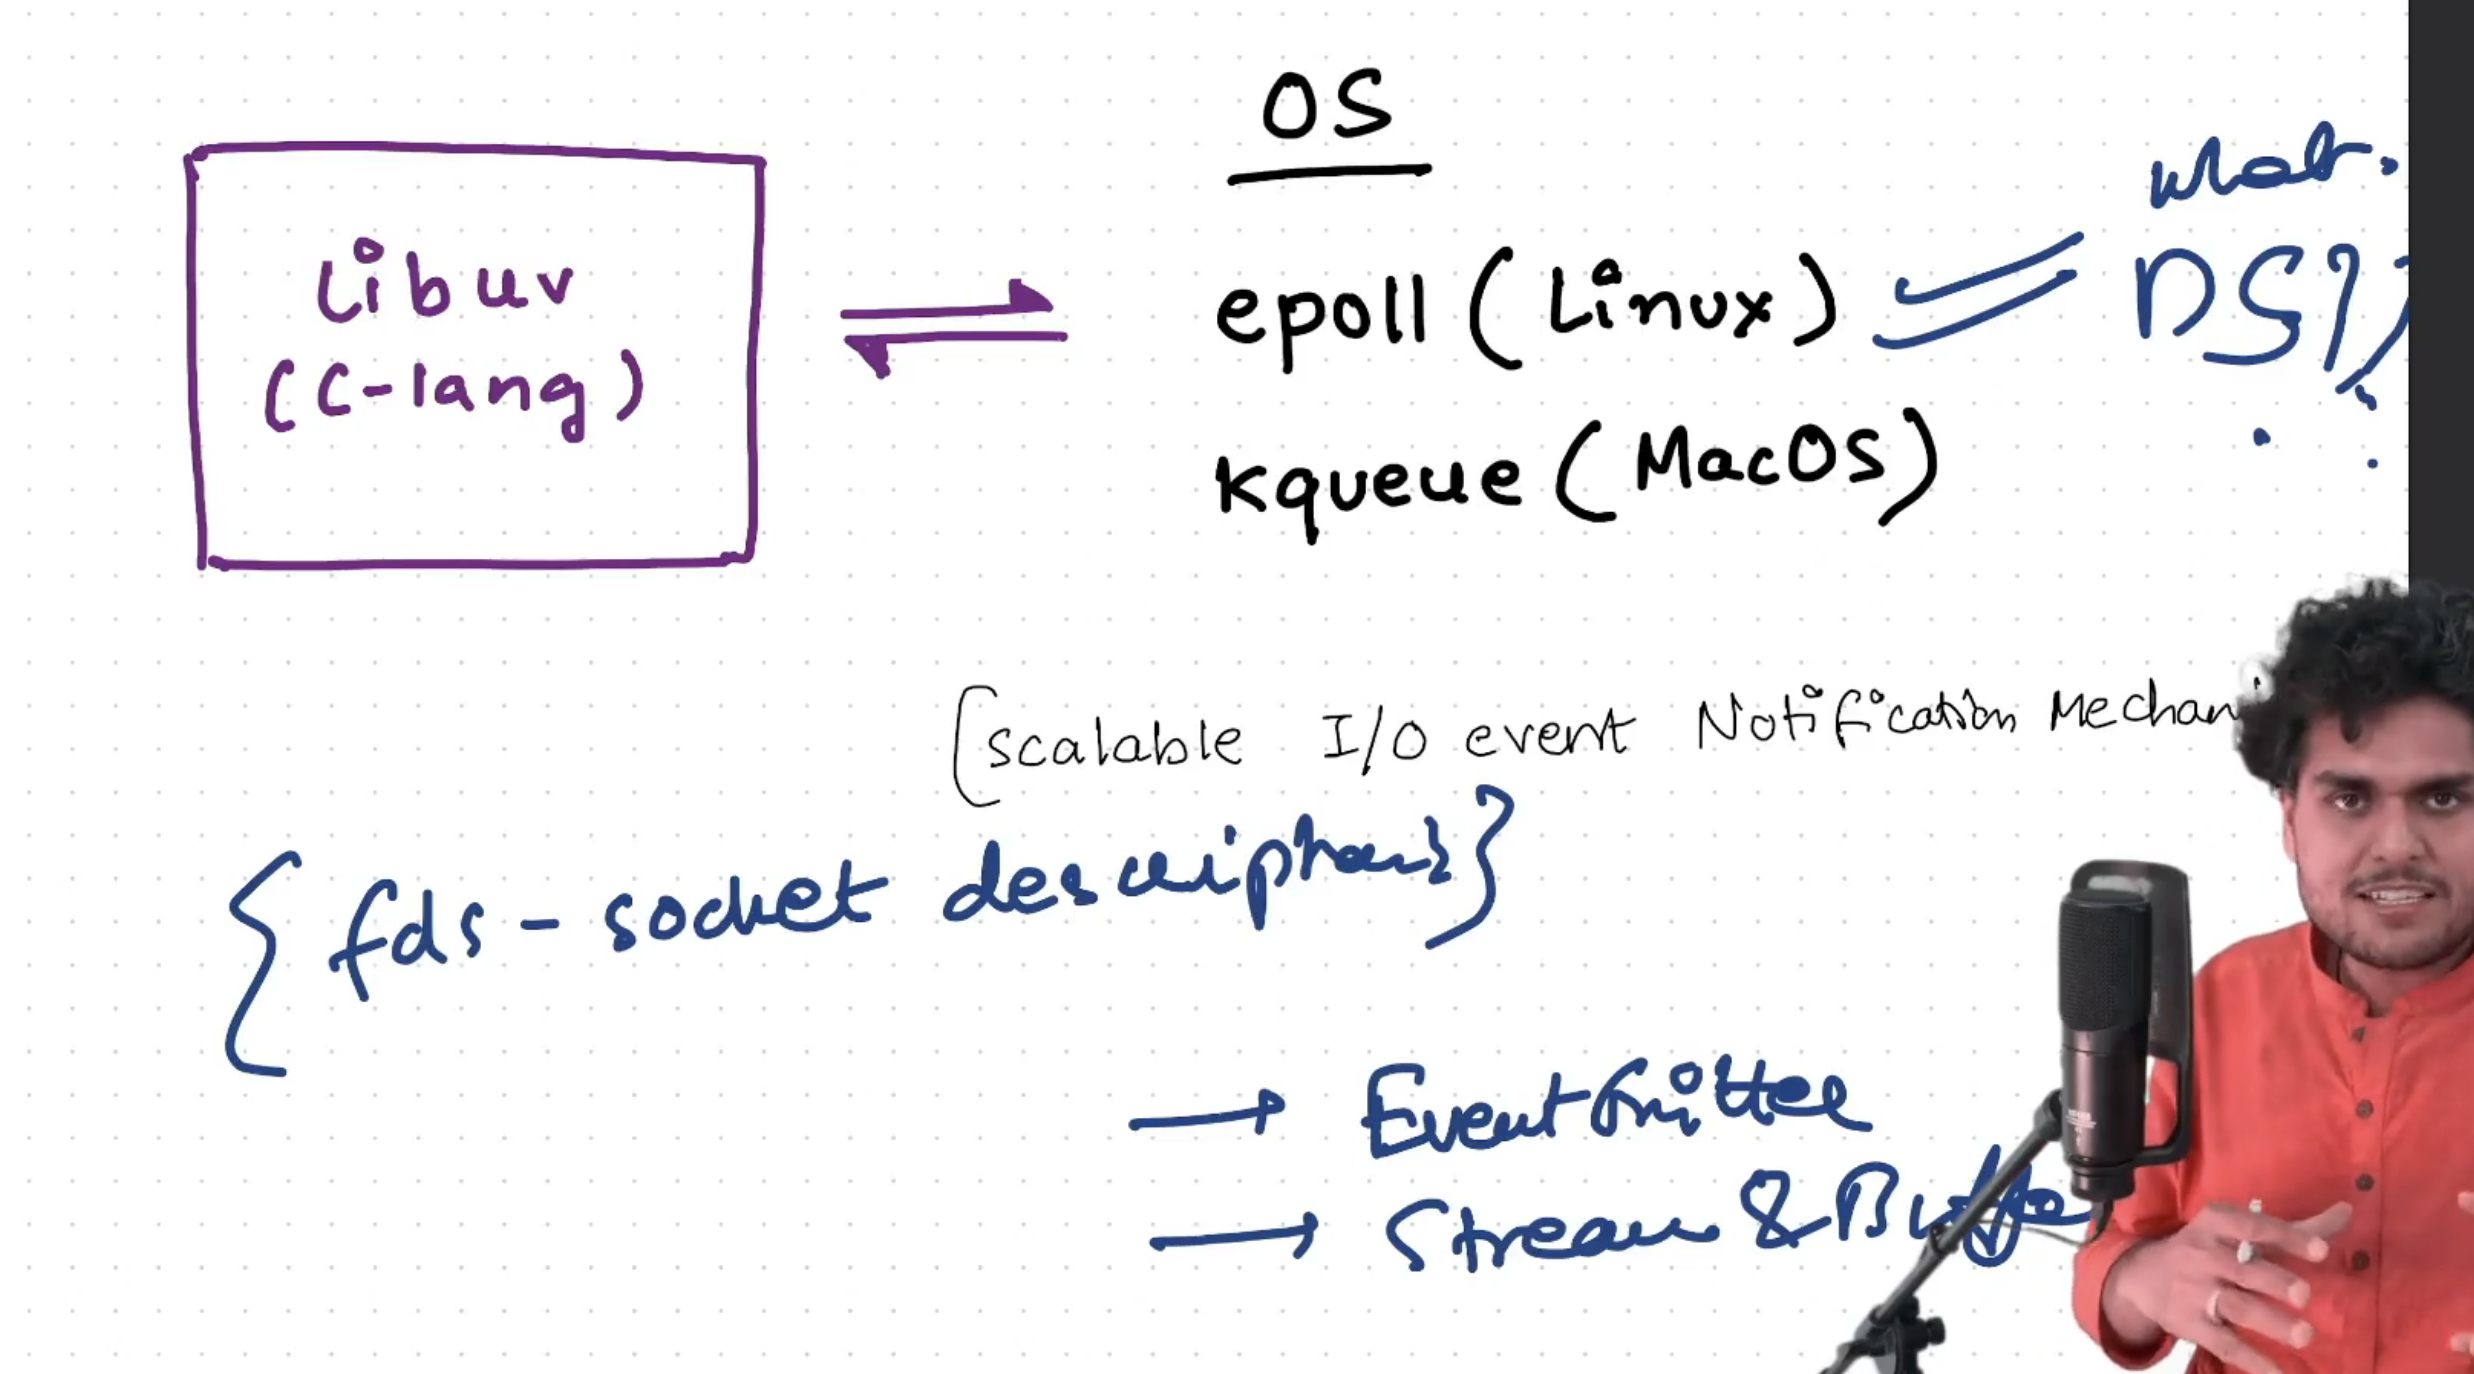 OS
Libuv
(C-lang)
epoll (Linux)
kqueue (MacOS)
what
DS??
(scalable I/O event Notification Mechani
{fds - socket descriptors}
→ EventEmitter
→ Stream & Buffe